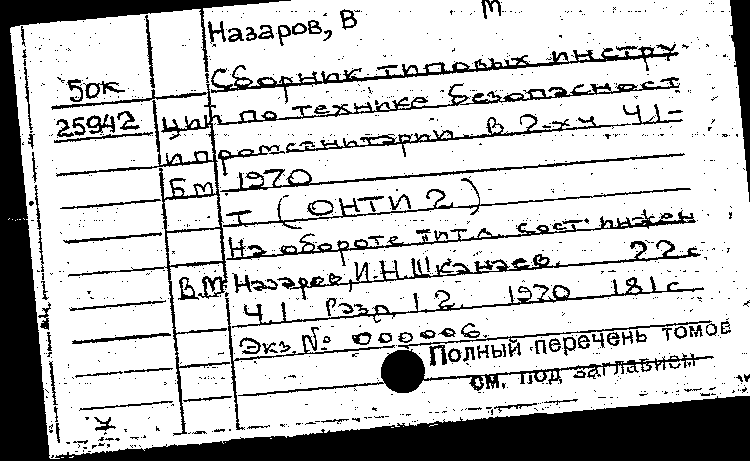 m
Назаров, В
50к Сборник типовых инстру-
25942 ций по технике безопасност
и промсанитарии. В 2-х ч Ч.1-
Б м 1970
т (ОНТИ 2)
На обороте тит.л. сост: инжен
В.М. Назаров, И.Н. Шканаев. 22 с
Ч.1 Разд. 1.2. 1970 181 с
Экз. № 000006
Полный перечень томов
см. под заглавием